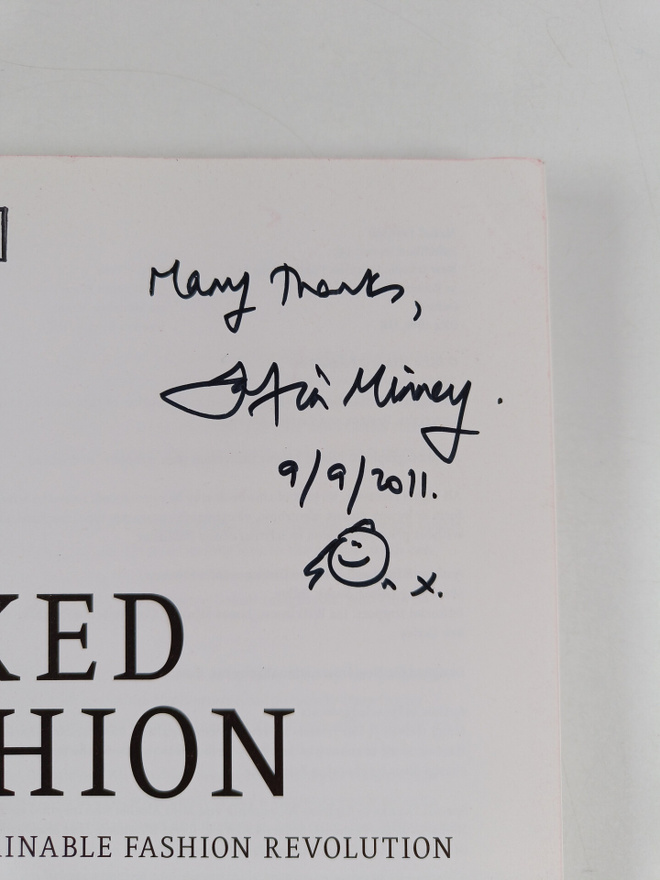 Many Thanks,
Safia Minney.
9/9/2011.
x.
KED
HION
AINABLE FASHION REVOLUTION